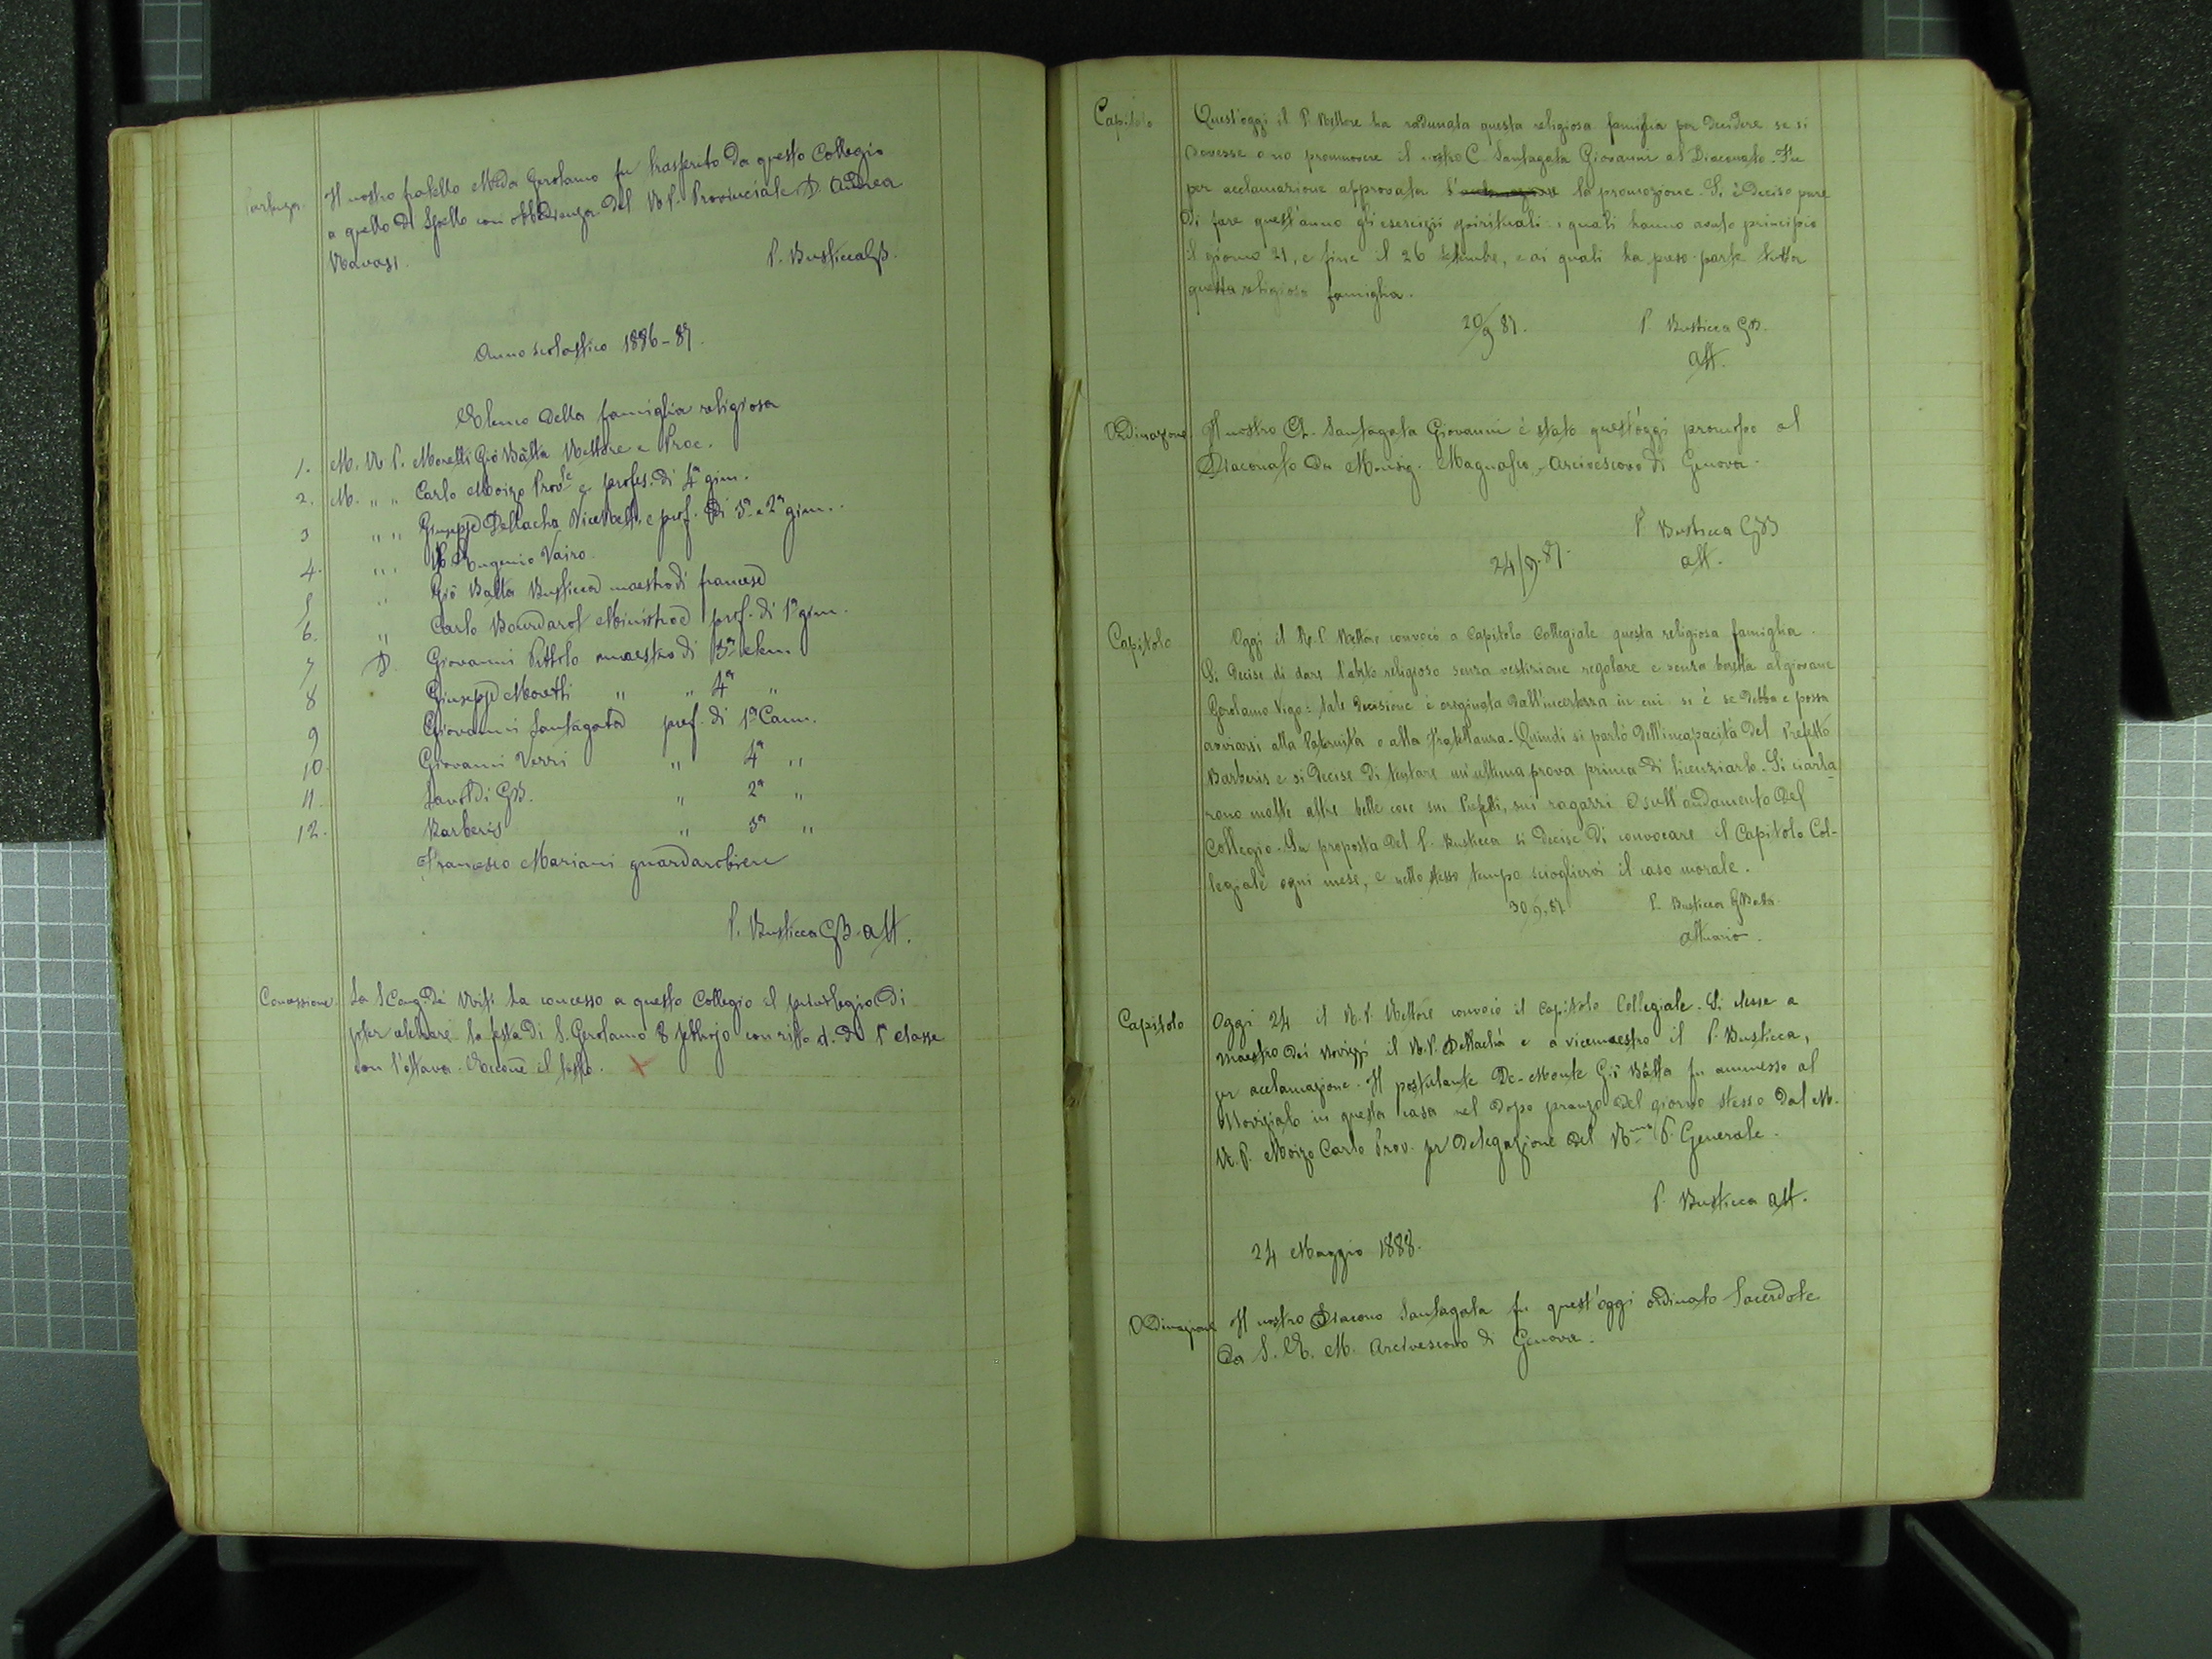 Partenza. Il nostro fratello Meda Gerolamo fu trasferito da questo Collegio
a quello di Spello con obbedienza del R. P. Provinciale D. Andrea
Ravasi.
P. Busticca GB.
Anno scolastico 1886-87.
Elenco della famiglia religiosa
1. M. R. P. Moretti Gio Batta Rettore e Proc.
2. M. " " Carlo Moizo Prov.le e profes. di 4a gin.
3 " " Giuseppe Dellachà Vice Rett. e prof. di 3a e 2a gin.
4. " " Eugenio Vairo
5 " Gio Batta Busticca maestro di francese
6. " Carlo Bourdarot Ministro e prof. di 1a gin.
7 D. Giovanni Pittolo maestro di 3a elem.
8 Giuseppe Moretti " " 4a "
9 Giovanni Santagata pref. di 1a Cam.
10. Giovanni Verri " 4a "
11. Savoldi GB. " 2a "
12. Barberis " 3a "
Francesco Mariani guardarobiere
P. Busticca GB. Att.
Concessione. La S Cong. dei Riti ha concesso a questo Collegio il privilegio di
poter celebrare la festa di S. Gerolamo 8 febbrajo con rito d. di 1a classe
con l'ottava. Eccone il testo. X
Capitolo Quest'oggi il P. Rettore ha radunata questa religiosa famiglia per decidere se si
dovesse o no promuovere il nostro C. Santagata Giovanni al Diaconato. Fu
per acclamazione approvata l' la promozione. Si è deciso pure
di fare quest'anno gli esercizii spirituali i quali hanno avuto principio
il giorno 21, e fine il 26 , e ai quali ha preso parte tutta
questa religiosa famiglia.
20/9 87. P. Busticca GB.
Att.
Ordinazione Il nostro Ch. Santagata Giovanni è stato quest'oggi promosso al
Diaconato da Monsig. Magnasco Arcivescovo di Genova.
P Busticca GB
24/9.87. Att.
Capitolo Oggi il R. P. Rettore convocò a Capitolo Collegiale questa religiosa famiglia.
Si decise di dare l'abito religioso senza vestizione regolare e senza beretta al giovane
Gerolamo Vigo: tale decisione è originata dall'incertezza in cui si è se debba e possa
avviarsi alla Paternità o alla Fratellanza. Quindi si parlò dell'incapacità del Prefetto
Barberis e si decise di tentare un'ultima prova prima di licenziarlo. Si ciarla-
rono molte altre belle cose sui Prefetti, sui ragazzi e sull'andamento del
Collegio. Su proposta del P. Busticca si decise di convocare il Capitolo Col-
legiale ogni mese, e nello stesso tempo sciogliervi il caso morale.
30.9.87 P. Busticca GBatta
Attuario.
Capitolo Oggi 24 il R. P. Rettore convocò il Capitolo Collegiale. Si elesse a
maestro dei Novizzi il R. P. Dellachà e a vicemaestro il P. Busticca,
per acclamazione. Il postulante De-Monte Gio Batta fu ammesso al
Noviziato in questa casa nel dopo pranzo del giorno stesso dal M.
R. P. Moizo Carlo Prov. per delegazione del Rmo P. Generale.
P. Busticca Att.
24 Maggio 1888.
Ordinazione Il nostro Diacono Santagata fu quest'oggi ordinato Sacerdote
da S. E. M. Arcivescovo di Genova.